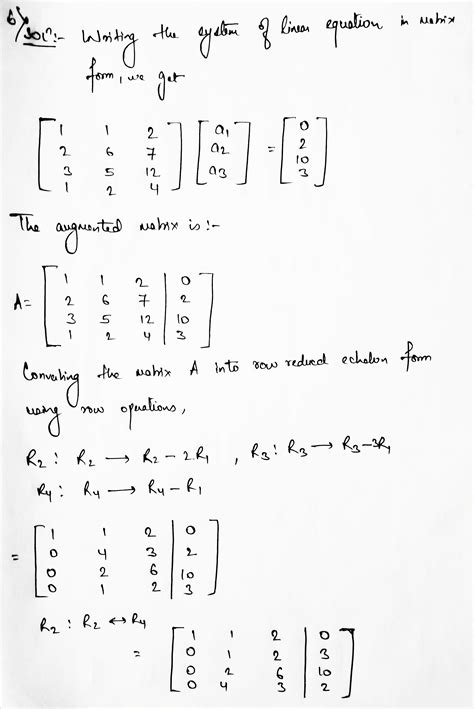 6) Solⁿ:- Writing the system of linear equation in matrix
form, we get
[ 1 1 2 ] [ a₁ ] [ 0 ]
[ 2 6 7 ] [ a₂ ] = [ 2 ]
[ 3 5 12 ] [ a₃ ] [ 10 ]
[ 1 2 4 ] [ 3 ]
The augmented matrix is :-
[ 1 1 2 | 0 ]
A= [ 2 6 7 | 2 ]
[ 3 5 12 | 10 ]
[ 1 2 4 | 3 ]
Converting the matrix A into row reduced echelon form
using row operations,
R₂ : R₂ → R₂ - 2R₁ , R₃ : R₃ → R₃ - 3R₁
R₄ : R₄ → R₄ - R₁
[ 1 1 2 | 0 ]
= [ 0 4 3 | 2 ]
[ 0 2 6 | 10 ]
[ 0 1 2 | 3 ]
R₂ : R₂ ↔ R₄
[ 1 1 2 | 0 ]
= [ 0 1 2 | 3 ]
[ 0 2 6 | 10 ]
[ 0 4 3 | 2 ]